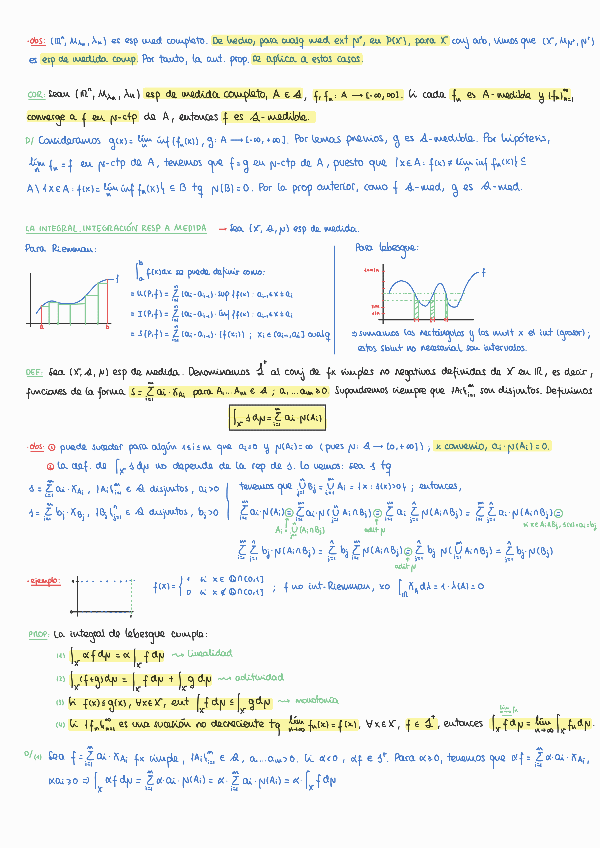 ·obs: (ℝⁿ, M_λn, λn) es esp med completo. De hecho, para cualq med ext μ*, en P(X), para X conj arb, vimos que (X, M_μ*, μ*)
es esp de medida comp. Por tanto, la ant. prop. se aplica a estos casos.
COR: Sean (ℝⁿ, M_λn, λn) esp de medida completo, A ∈ 𝒜, f, fn: A → [-∞,∞]. Si cada fn es A-medible y {fn}ₙ₌₁^∞
converge a f en μ-ctp de A, entonces f es 𝒜-medible.
D/ Consideramos g(x) = lím inf {fn(x)}, g: A → [-∞,+∞]. Por lemas previos, g es 𝒜-medible. Por hipótesis,
lím fn = f en μ-ctp de A, tenemos que f = g en μ-ctp de A, puesto que {x∈A: f(x) ≠ lím inf fn(x)} ⊆
A \ {x∈A: f(x) = lím inf fn(x)} ⊆ B tq μ(B) = 0. Por la prop anterior, como f 𝒜-med, g es 𝒜-med.
LA INTEGRAL. INTEGRACIÓN RESP A MEDIDA → Sea (X, 𝒜, μ) esp de medida.
Para Riemman:
f
a b
∫_a^b f(x)dx se puede definir como:
= U(P,f) = Σ (ai - ai-1) · sup {f(x) : ai-1 ≤ x ≤ ai}
= I(P,f) = Σ (ai - ai-1) · inf {f(x) : ai-1 ≤ x ≤ ai}
= S(P,f) = Σ (ai - ai-1) · {f(xi)} ; xi ∈ [ai-1, ai] cualq
Para Lebesgue:
f
→ sumamos los rectángulos y los mult x el int (grosor);
estos sbint no necesarial son intervalos.
DEF: Sea (X, 𝒜, μ) esp de medida. Denominamos 𝒮⁺ al conj de fx simples no negativas definidas de X en ℝ, es decir,
funciones de la forma s = Σᵢ₌₁^m ai · χ_Ai para A₁...Am ∈ 𝒜; a₁...am ≥ 0. Supondremos siempre que {Ai}ᵢ₌₁^m son disjuntos. Definimos
∫_X s dμ = Σᵢ₌₁^m ai μ(Ai)
·obs: ① puede suceder para algún 1≤i≤m que ai=0 y μ(Ai)=∞ (pues μ: 𝒜 → [0,+∞]), x convenio, ai·μ(Ai)=0.
② la def. de ∫_X s dμ no depende de la rep de s. Lo vemos: sea s tq
s = Σᵢ₌₁^m ai · χ_Ai, {Ai}ᵢ₌₁^m ∈ 𝒜 disjuntos, ai>0
s = Σⱼ₌₁^n bj · χ_Bj, {Bj}ⱼ₌₁^n ∈ 𝒜 disjuntos, bj>0
tenemos que ∪Bj = ∪Ai = {x : s(x)>0}; entonces,
Σ ai·μ(Ai) = Σ ai·μ(∪(Ai∩Bj)) = Σ ai Σ μ(Ai∩Bj) = Σ Σ ai·μ(Ai∩Bj) =
Ai = ∪(Ai∩Bj) adit μ si x∈Ai∩Bj, s(x)=ai=bj
Σ Σ bj·μ(Ai∩Bj) = Σ bj Σ μ(Ai∩Bj) = Σ bj·μ(∪(Ai∩Bj)) = Σ bj·μ(Bj)
adit μ
·ejemplo:
f(x) = { 1 si x ∈ ℚ∩[0,1]
0 si x ∉ ℚ∩[0,1] ; f no int-Riemman, xo ∫_ℝ χ_A dλ = 1·λ(A) = 0
PROP: La integral de Lebesgue cumple:
(1) ∫_X αf dμ = α ∫_X f dμ → linealidad
(2) ∫_X (f+g)dμ = ∫_X f dμ + ∫_X g dμ → aditividad
(3) Si f(x) ≤ g(x), ∀x∈X, ent ∫_X f dμ ≤ ∫_X g dμ → monotonía
(4) Si {fn}ₙ₌₁^∞ es una sucesión no decreciente tq lím_{n→∞} fn(x) = f(x), ∀x∈X, f ∈ 𝒮⁺, entonces ∫_X f dμ = lím_{n→∞} ∫_X fn dμ.
D/ (1) Sea f = Σᵢ₌₁^m ai · χ_Ai fx simple, {Ai}ᵢ₌₁^m ∈ 𝒜, a₁...am>0. Si α<0, αf ∈ 𝒮⁺. Para α≥0, tenemos que αf = Σᵢ₌₁^m α·ai·χ_Ai,
αai ≥ 0 ⇒ ∫_X αf dμ = Σᵢ₌₁^m α·ai·μ(Ai) = α·Σᵢ₌₁^m ai·μ(Ai) = α·∫_X f dμ